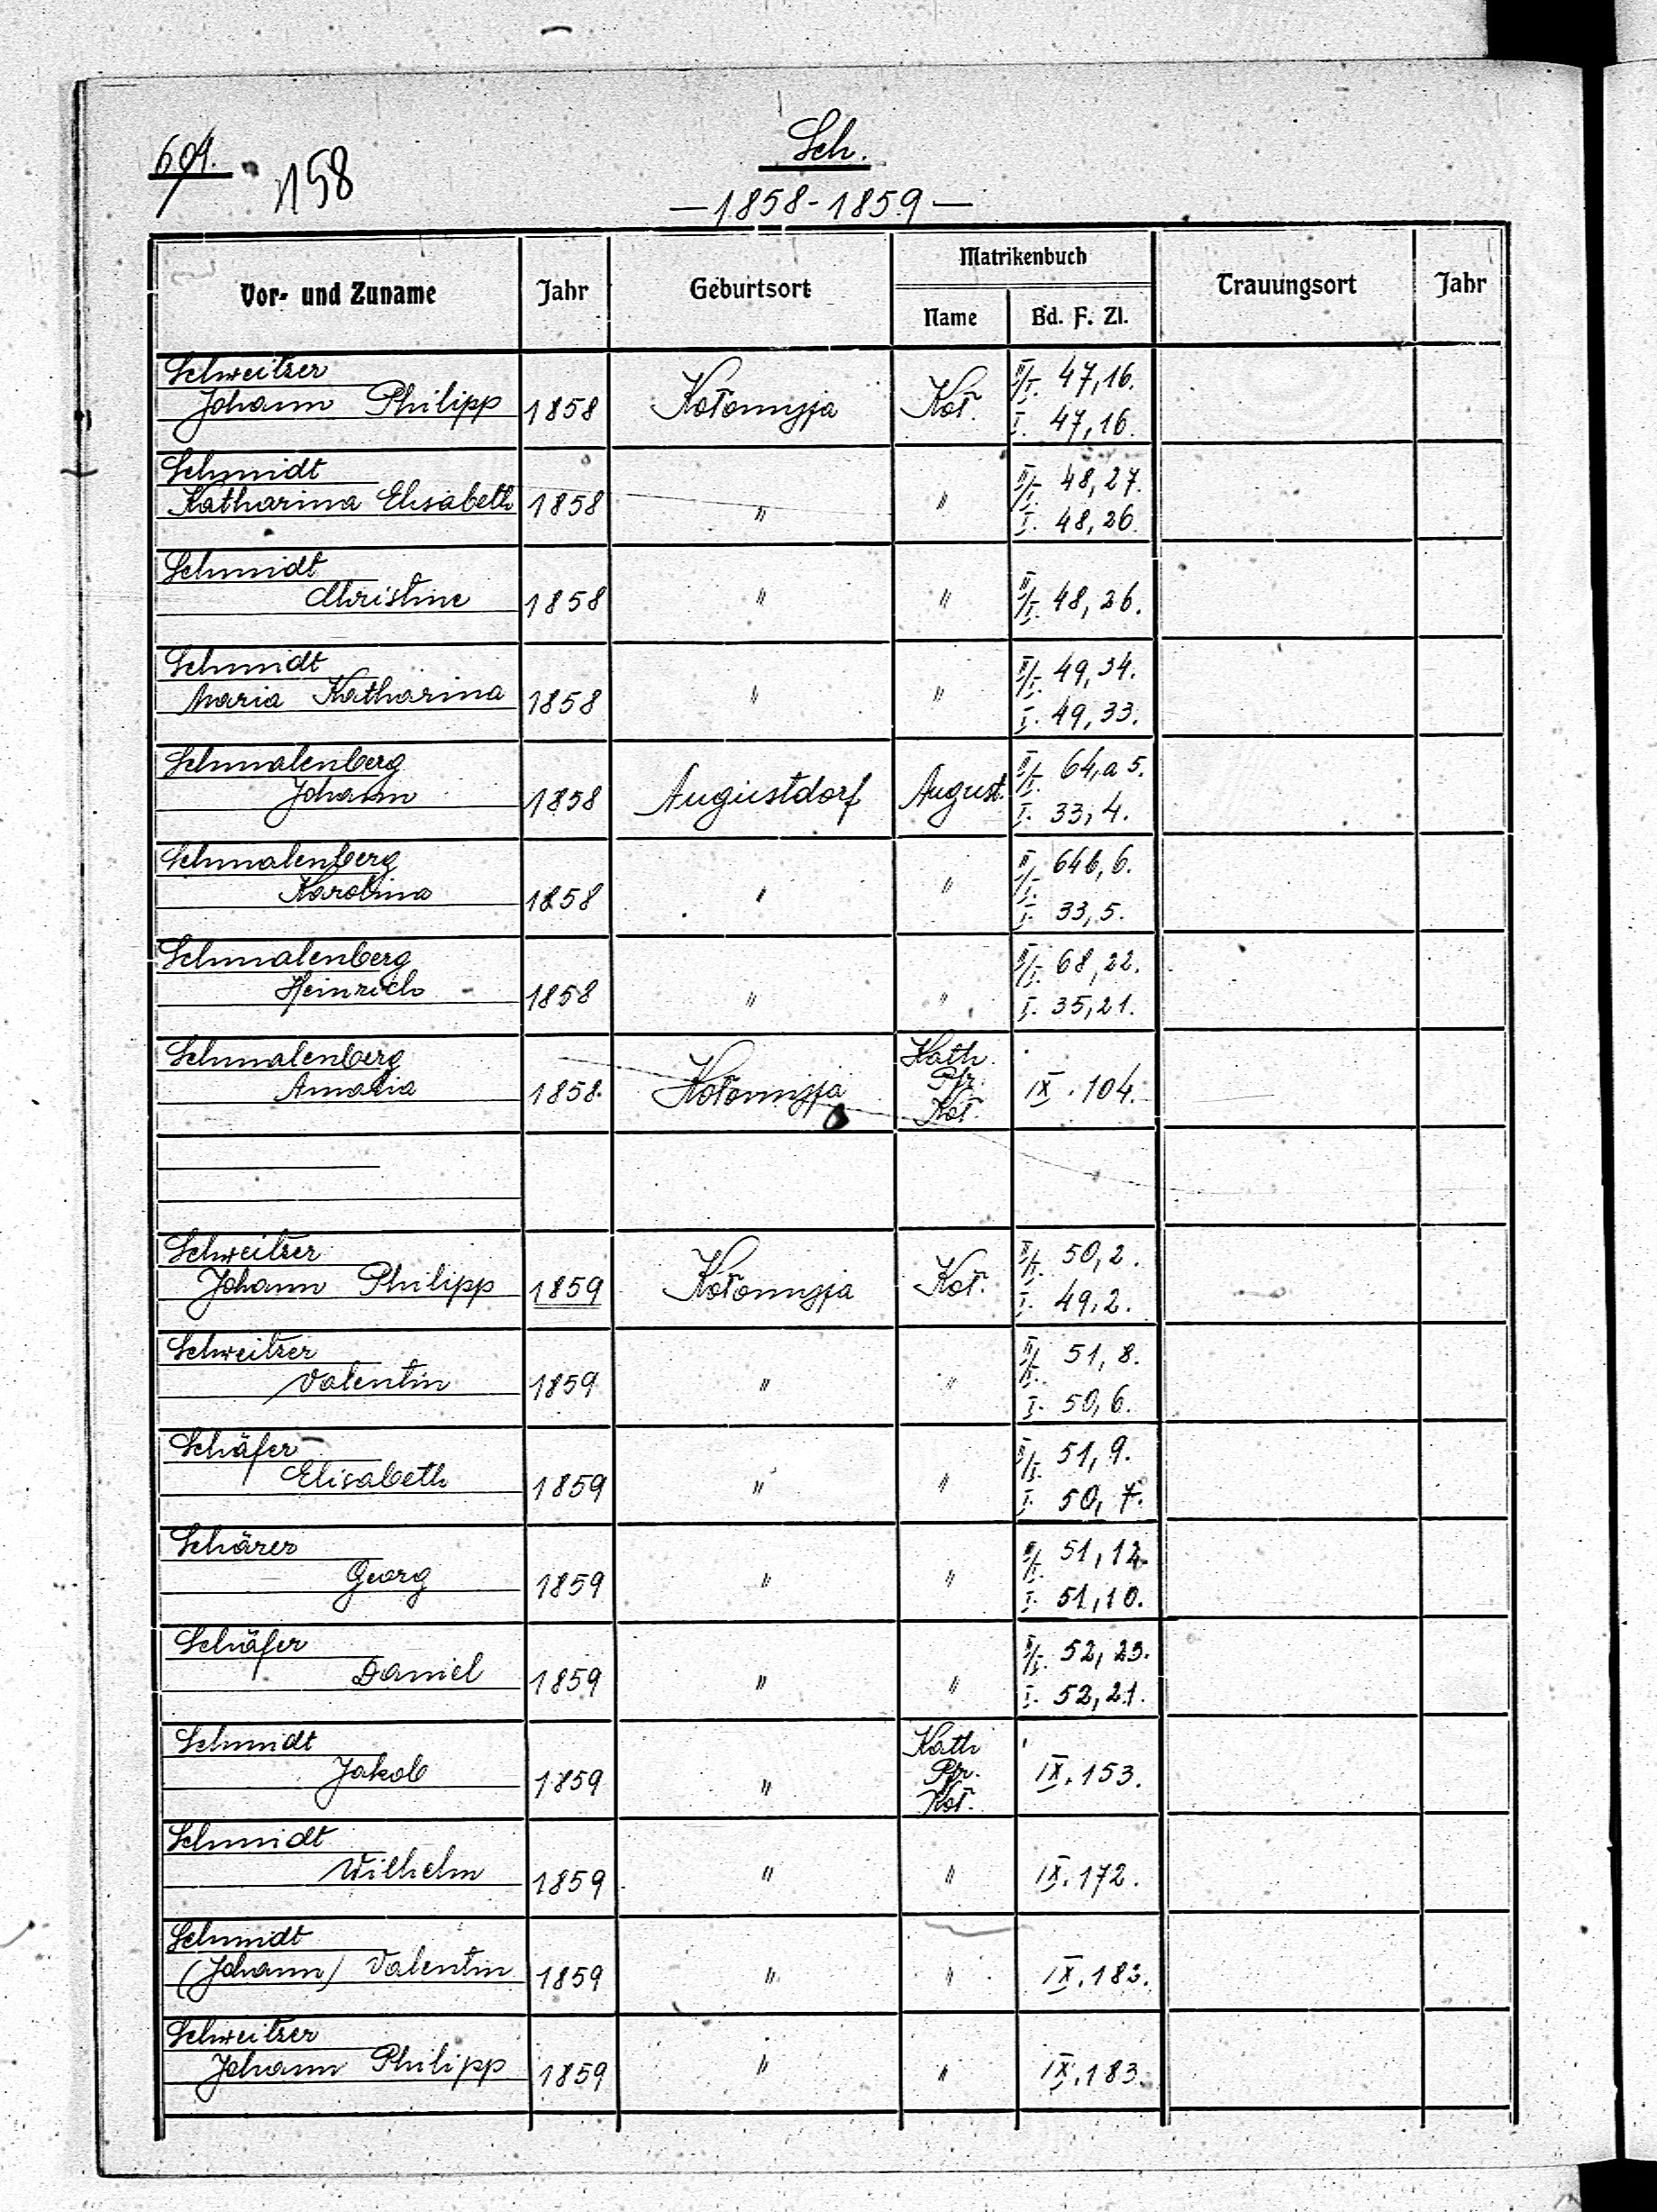 Sch.
691. 158
— 1858-1859 —
Vor- und Zuname Jahr Geburtsort Matrikenbuch Trauungsort Jahr
Name Bd. F. Zl.
Schweitzer II/I. 47,16.
Johann Philipp 1858 Kołomyja Koł. I. 47,16.
Schmidt II/I. 48,27.
Katharina Elisabeth 1858 " " I. 48,26.
Schmidt
Christine 1858 " " II/I. 48,26.
Schmidt II/I. 49,34.
Maria Katharina 1858 " " I. 49,33.
Schmalenberg II/I. 64,a 5.
Johann 1858 Augustdorf August. I. 33,4.
Schmalenberg II/I. 64b,6.
Karolina 1858 " " I. 33,5.
Schmalenberg II/I. 68,22.
Heinrich 1858 " " I. 35,21.
Schmalenberg Kath.
Amalia 1858. Kołomyja Pfr. IX. 104.
Koł.
Schweitzer II/I. 50,2.
Johann Philipp 1859 Kołomyja Koł. I. 49,2.
Schweitzer II/I. 51,8.
Valentin 1859 " " I. 50,6.
Schäfer II/I. 51,9.
Elisabeth 1859 " " I. 50,7.
Schärer II/I. 51,12.
Georg 1859 " " I. 51,10.
Schäfer II/I. 52,23.
Daniel 1859 " " I. 52,21.
Schmidt Kath
Jakob 1859 " Pfr. IX. 153.
Koł.
Schmidt
Wilhelm 1859 " " IX. 172.
Schmidt
(Johann) Valentin 1859 " " IX. 183.
Schweitzer
Johann Philipp 1859 " " IX. 183.